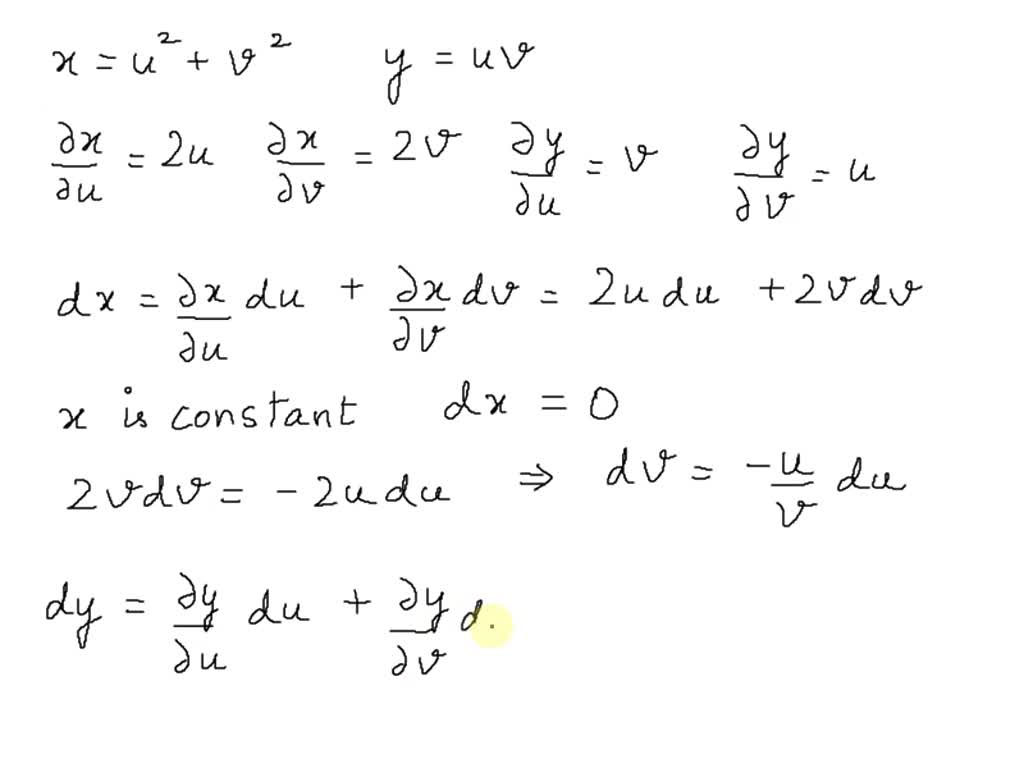 x = u² + v² y = uv
∂x/∂u = 2u ∂x/∂v = 2v ∂y/∂u = v ∂y/∂v = u
dx = ∂x/∂u du + ∂x/∂v dv = 2u du + 2v dv
x is constant dx = 0
2v dv = - 2u du ⇒ dv = -u/v du
dy = ∂y/∂u du + ∂y/∂v d